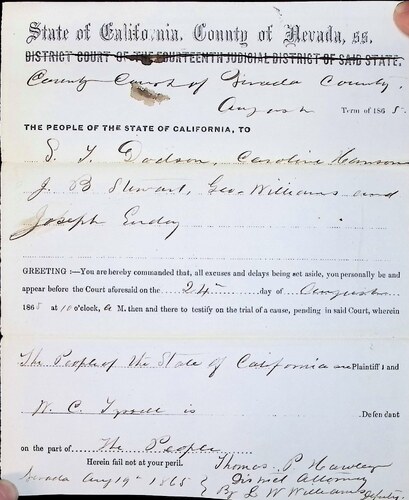 State of California. County of Nevada, ss.
DISTRICT COURT OF THE FOURTEENTH JUDICIAL DISTRICT OF SAID STATE.
County Court of Nevada County,
August Term of 1865.
THE PEOPLE OF THE STATE OF CALIFORNIA, TO
S. T. Dodson, Caroline Hanson
J. B Stewart, Geo. Williams and
Joseph
GREETING :—You are hereby commanded that, all excuses and delays being set aside, you personally be and
appear before the Court aforesaid on the 24 day of August
1865 at 10 o'clock, A. M. then and there to testify on the trial of a cause, pending in said Court, wherein
The People of the State of California are Plaintiff s and
W. C. is Defendant
on the part of The People
Herein fail not at your peril.
Thomas P. Hawley
Nevada Aug 19th 1865 { District Attorney
By L W Williams Deputy